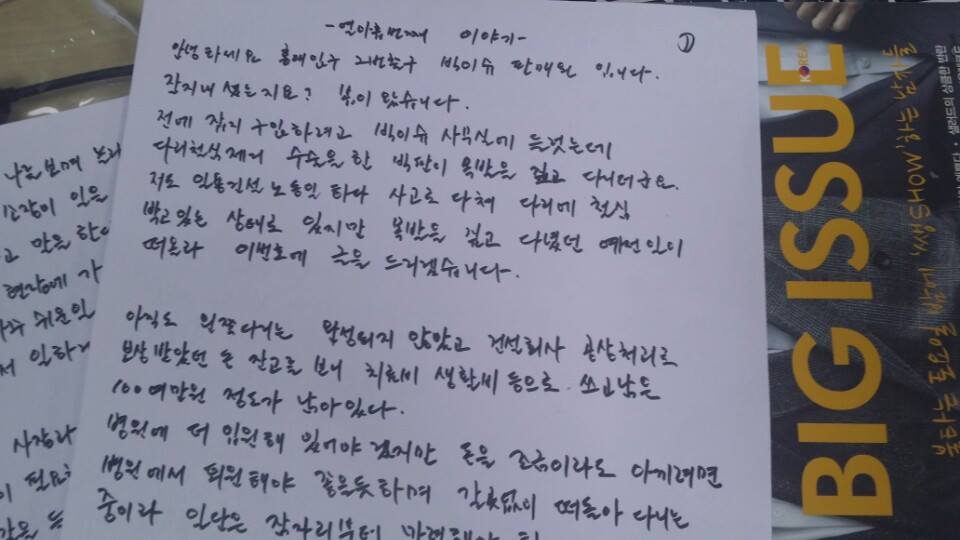 -연아홉번째 이야기-
①
안녕하세요 홍대입구 2번출구 빅이슈 판매원 입니다.
잘지내 셨는지요? 봄이 왔습니다.
전에 잡지 구입하려고 빅이슈 사무실에 들렸는데
다리철심제거 수술을 한 빅판이 목발을 짚고 다니더군요.
저도 일용건설 노동일 하다 사고로 다쳐 다리에 철심
박고있는 상태로 있지만 목발을 짚고 다녔던 예전일이
떠올라 이번호에 글을 드리겠습니다.
아직도 왼쪽다리는 완성되지 않았고 건설회사 공상처리로
보상받았던 돈 잔고를 보니 치료비 생활비 등으로 쓰고남은
100여만원 정도가 남아있다.
병원에 더 입원해 있어야 겠지만 돈을 조금이라도 아끼려면
병원에서 퇴원해야 좋을듯하며 갈곳없이 떠돌아 다니는
중이라 일단은 잠자리부터
나를 보며
소장이 있을
고 말을
현장에 가
쉬운일
서 일하
사장
이 필요
BIG ISSUE
KOREA